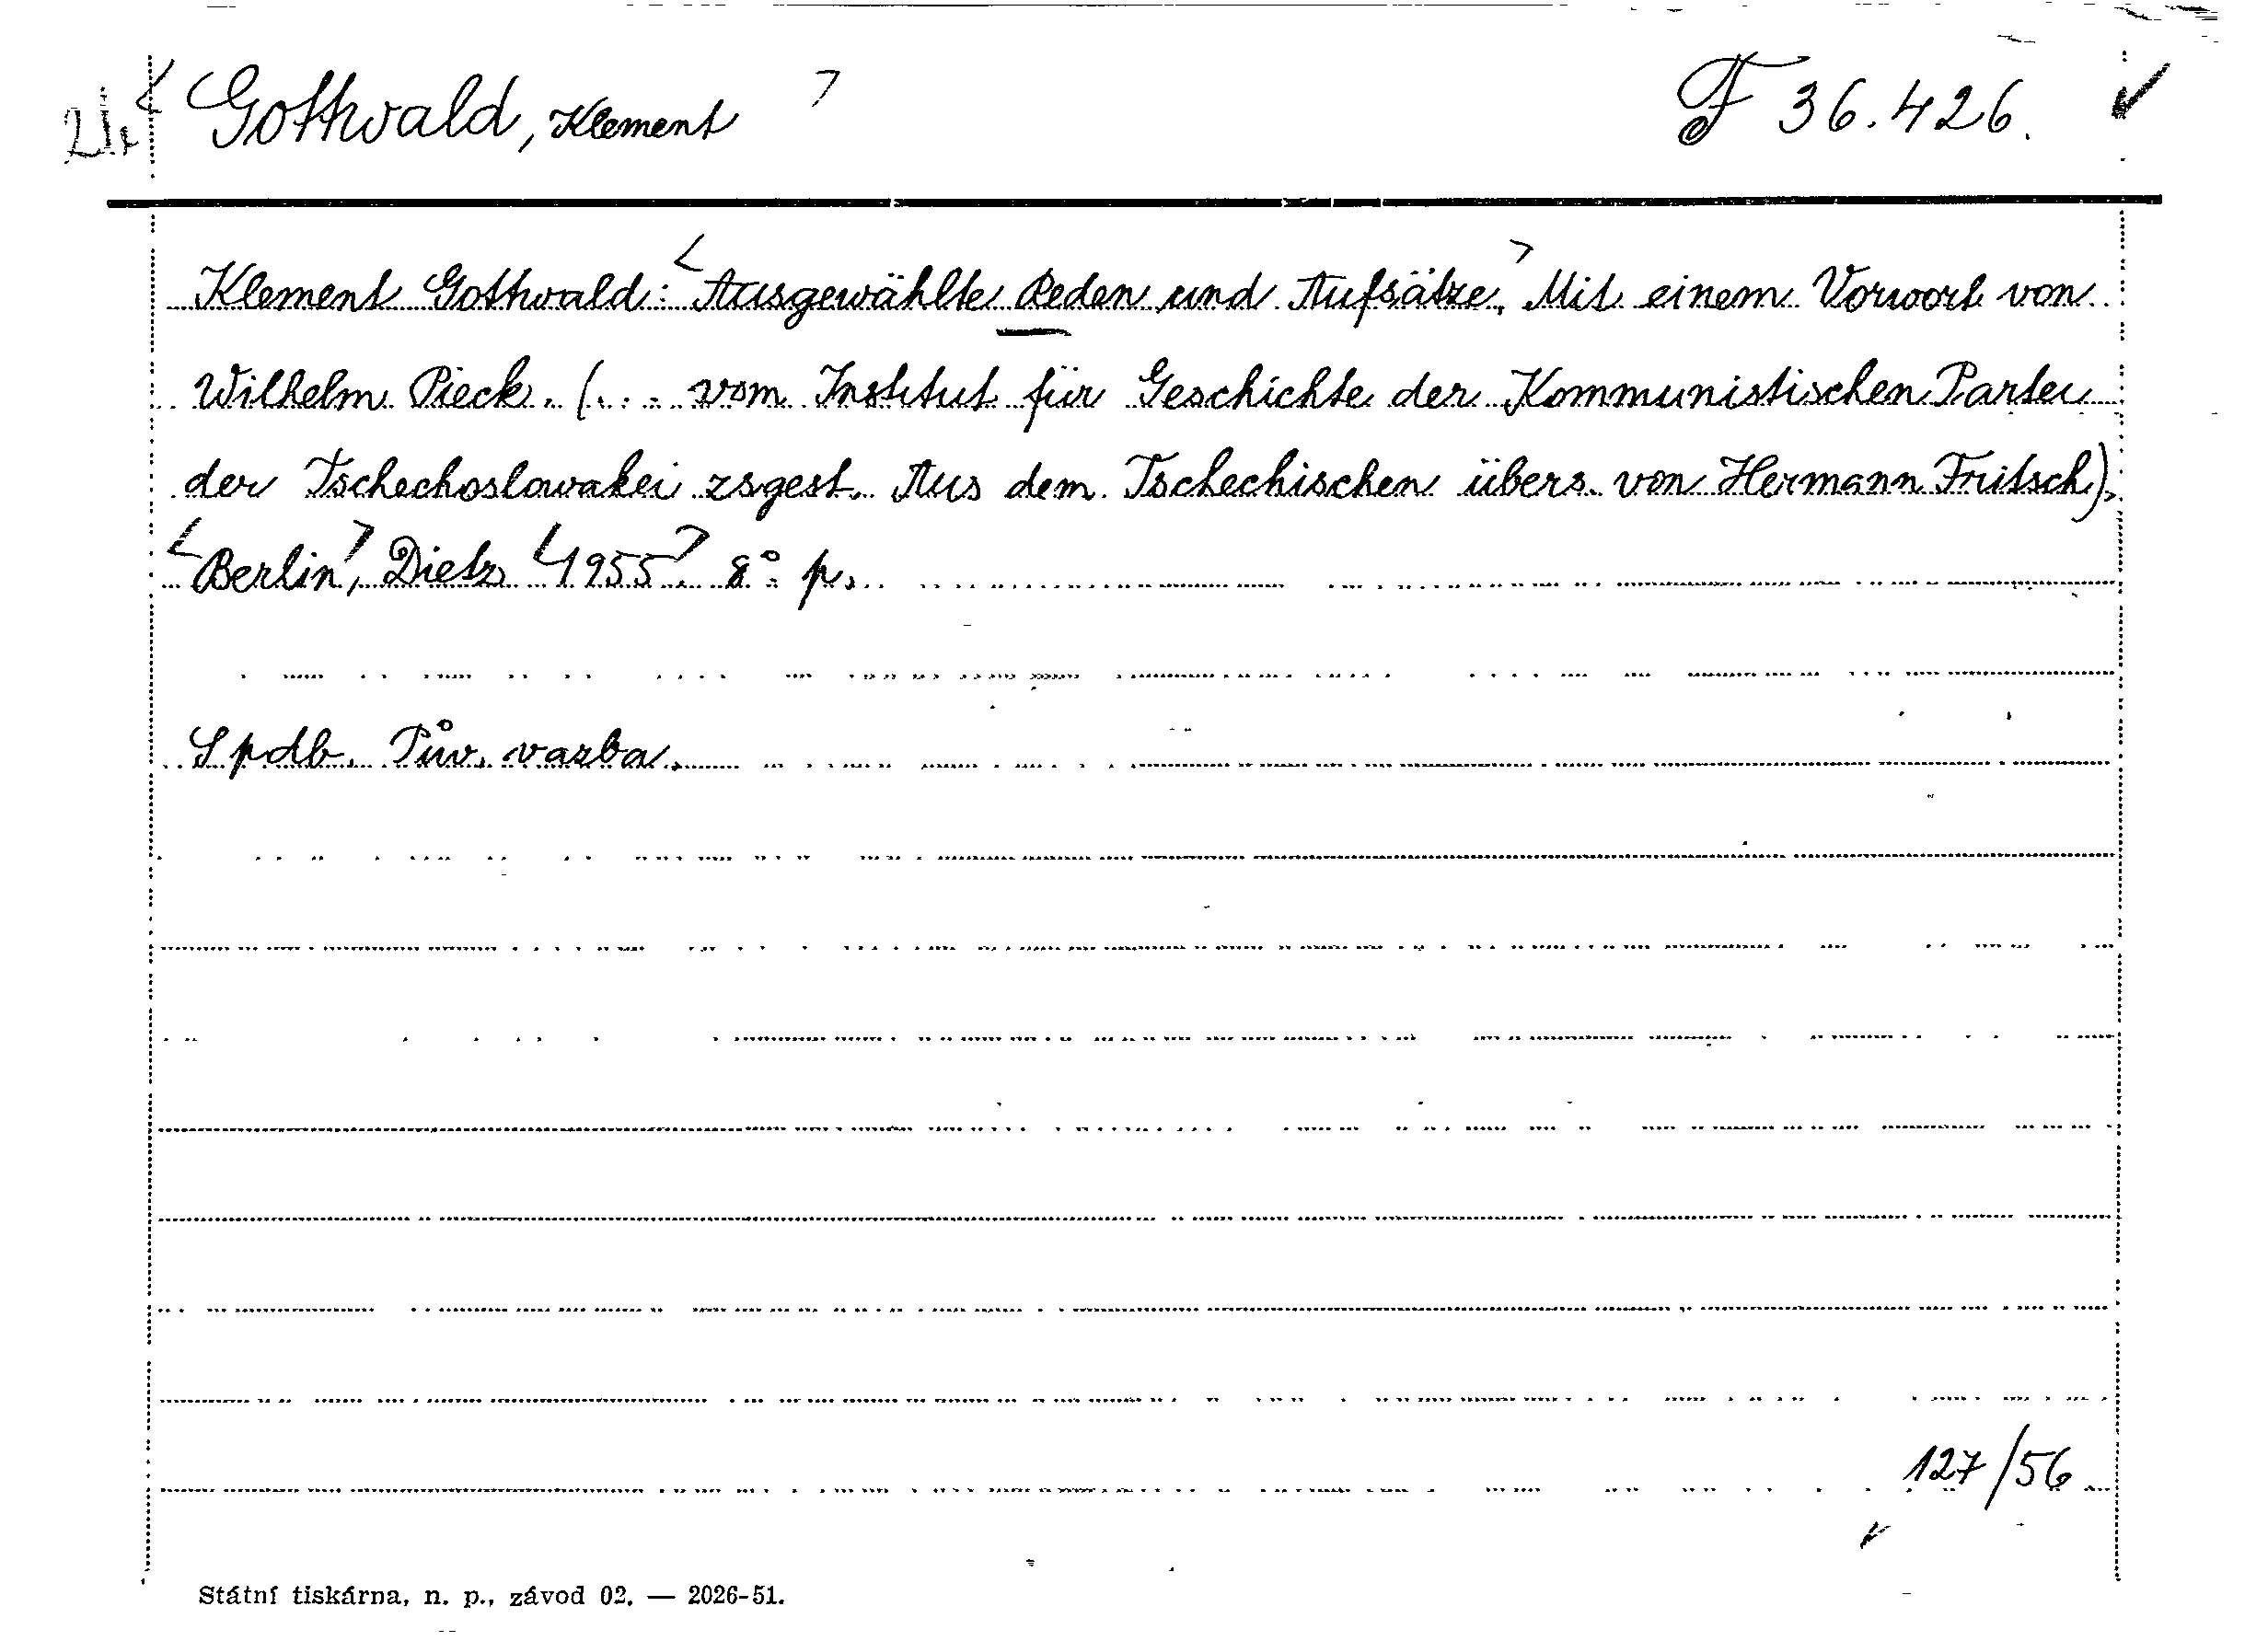 <Gottwald, Klement> F 36.426.
Klement Gottwald: <Ausgewählte Reden und Aufsätze,> Mit einem Vorwort von
Wilhelm Pieck. (... vom Institut für Geschichte der Kommunistischen Partei
der Tschechoslowakei zsgest. Aus dem Tschechischen übers. von Hermann Fritsch).
<Berlin>, Dietz <1955>. 8°. p.
Spdb. Pův. vazba.
127/56
Státní tiskárna, n. p., závod 02. — 2026-51.